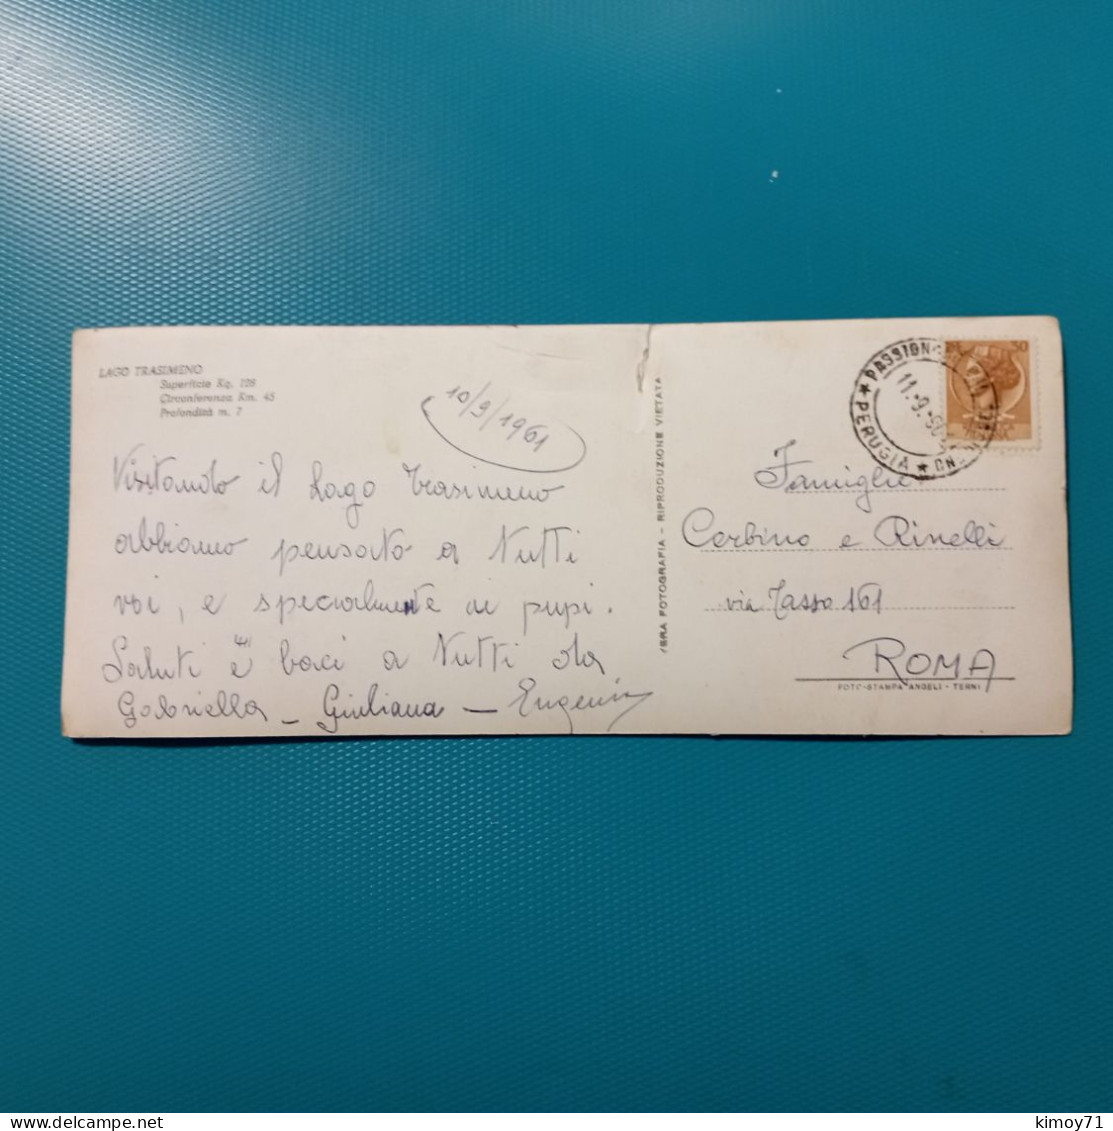 LAGO TRASIMENO
Superficie Kq. 128
Circonferenza Km. 45
Profondità m. 7
10/9/1961
Visitando il Lago Trasimeno
abbiamo pensato a tutti
voi, e specialmente ai pupi.
Saluti e baci a tutti da
Gabriella - Giuliana - Eugenio
VERA FOTOGRAFIA - RIPRODUZIONE VIETATA
PASSIGN
PERUGIA
11.-9.-
30
Famiglie
Corbino e Rinelli
via Tasso 161
ROMA
FOTO-STAMPA ANGELI - TERNI
kimoy71